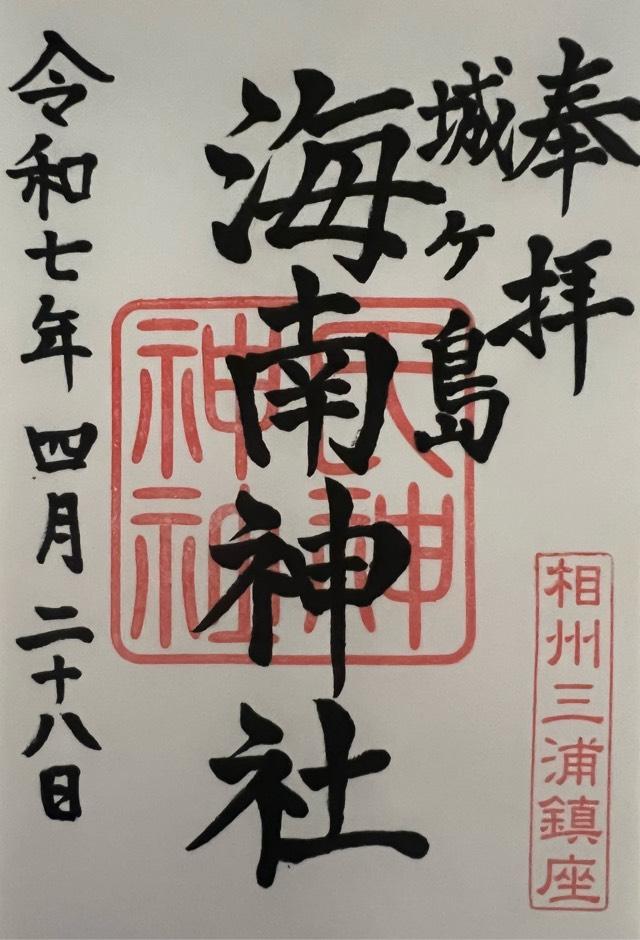 奉拝
城ヶ島
海南神社
令和七年四月二十八日
相州三浦鎮座
氏神
神社